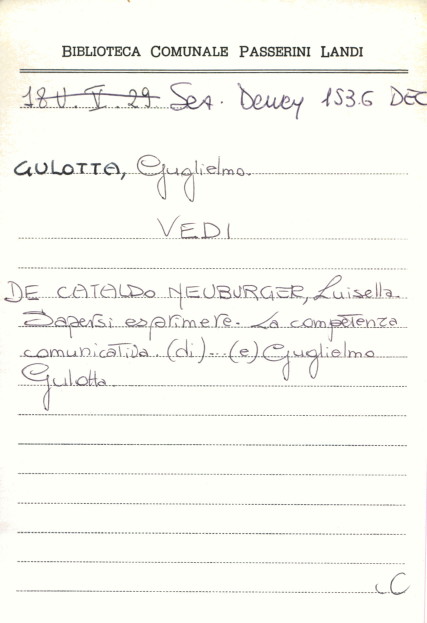 BIBLIOTECA COMUNALE PASSERINI LANDI
18U. V. 29 Sez. Dewey 153.6 DEC
GULOTTA, Guglielmo.
VEDI
DE CATALDO NEUBURGER, Luisella.
Sapersi esprimere. La competenza
comunicativa. (di)... (e) Guglielmo
Gulotta.